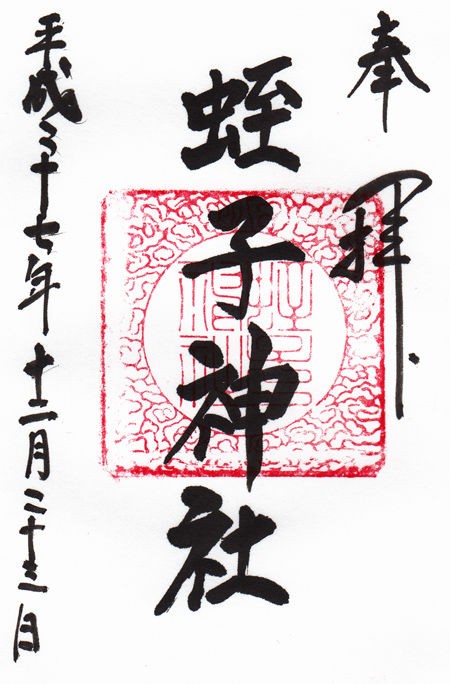 奉拝
蛭子神社
平成二十七年十二月二十三日